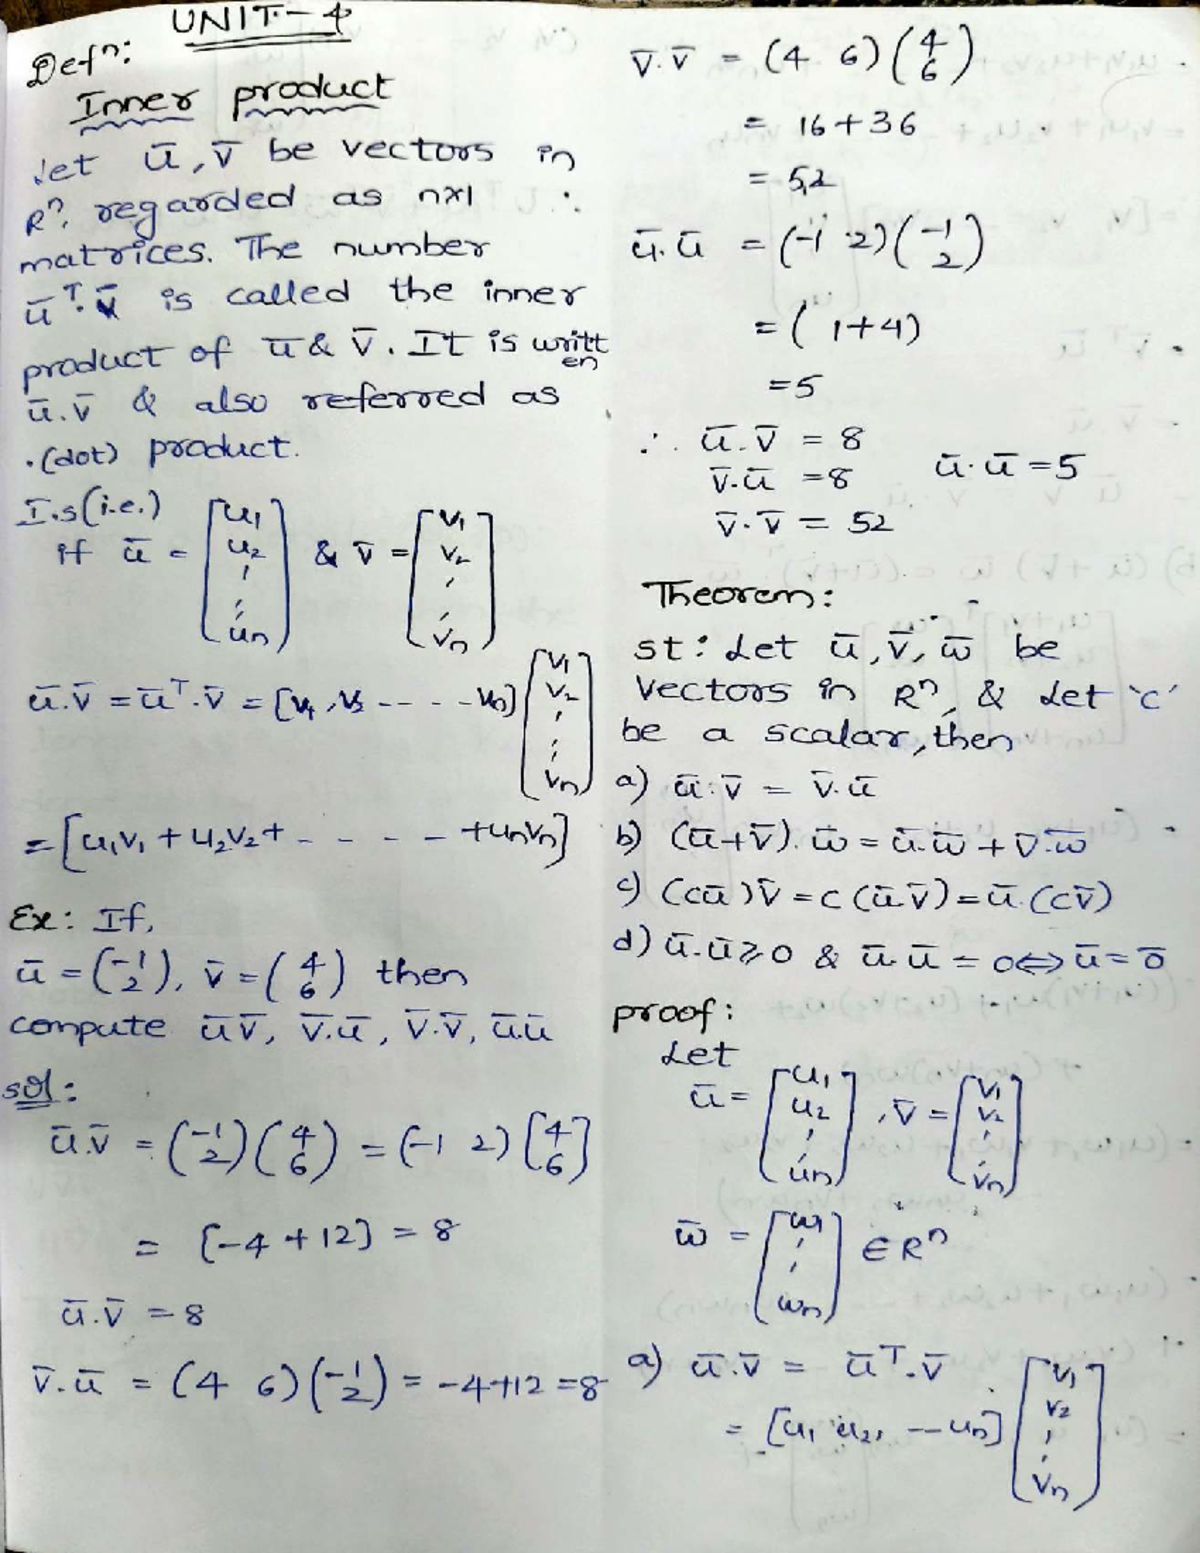 UNIT - 4
Defⁿ:
Inner product
Let ū, v̄ be vectors in
Rⁿ, regarded as n×1
matrices. The number
ūᵀ.v̄ is called the inner
product of ū & v̄. It is writt
en
ū.v̄ & also referred as
.(dot) product.
I.s(i.e.)
if ū = [u₁ u₂ ⋮ uₙ] & v̄ = [v₁ v₂ ⋮ vₙ]
ū.v̄ = ūᵀ.v̄ = [v₁, v₂ ----- vₙ] [v₁ v₂ ⋮ vₙ]
= [u₁v₁ + u₂v₂ + - - - - + uₙvₙ]
Ex: If,
ū = (-1 2), v̄ = (4 6) then
compute ūv̄, v̄.ū, v̄.v̄, ū.ū
sol:
ū.v̄ = (-1 2)(4 6) = (-1 2)[4 6]
= [-4 + 12] = 8
ū.v̄ = 8
v̄.ū = (4 6)(-1 2) = -4+12 = 8
v̄.v̄ = (4 6)(4 6)
= 16+36
= 52
ū.ū = (-1 2)(-1 2)
= ( 1+4)
= 5
∴ ū.v̄ = 8
v̄.ū = 8 ū.ū = 5
v̄.v̄ = 52
Theorem:
st: Let ū, v̄, w̄ be
vectors in Rⁿ, & Let 'c'
be a scalar, then
a) ū.v̄ = v̄.ū
b) (ū+v̄).w̄ = ū.w̄ + v̄.w̄
c) (cū)v̄ = c(ū.v̄) = ū.(cv̄)
d) ū.ū ≥ 0 & ū.ū = 0 ⇔ ū = 0̄
proof:
Let
ū = [u₁ u₂ ⋮ uₙ], v̄ = [v₁ v₂ ⋮ vₙ]
w̄ = [w₁ ⋮ wₙ] ∈ Rⁿ
a) ū.v̄ = ūᵀ.v̄
= [u₁ u₂, -- uₙ] [v₁ v₂ ⋮ vₙ]